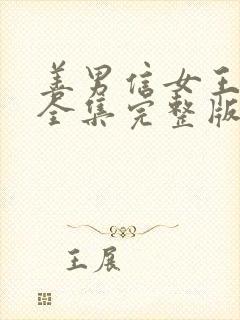 善男信女王
全集完整版
王展